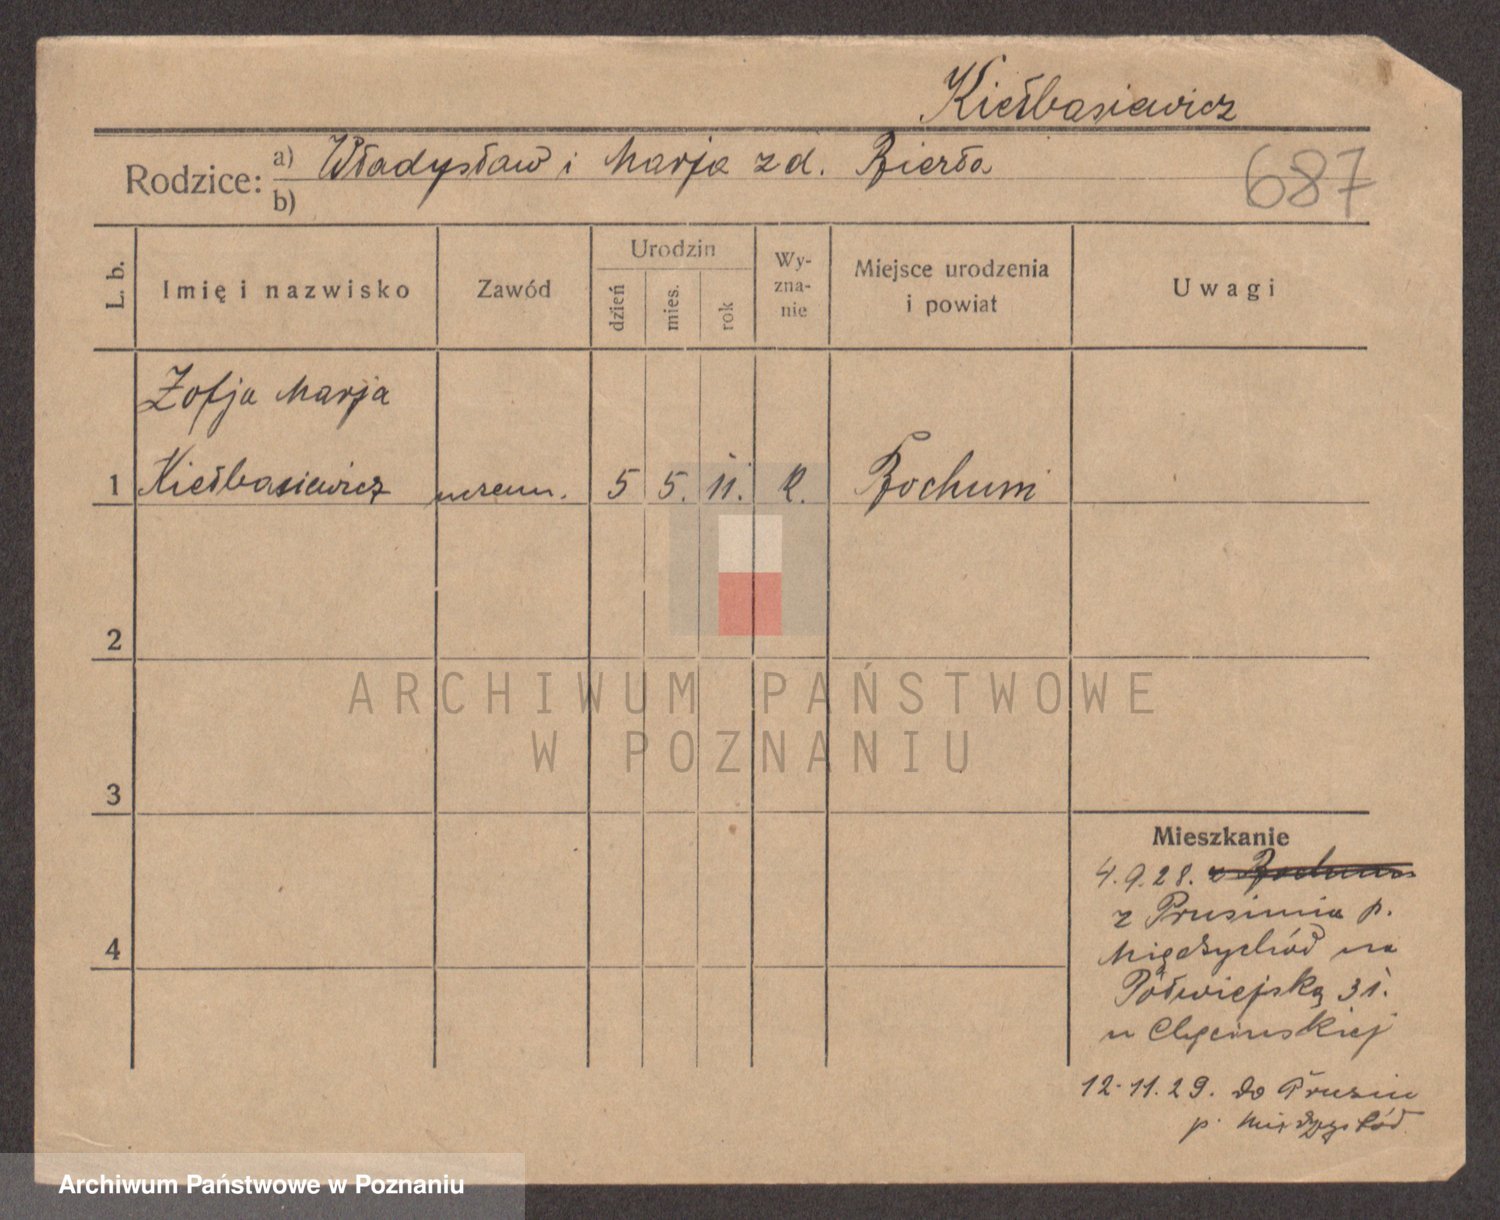 Kiełbasiewicz
Rodzice: a) Władysław i Marja z d. Bierła
b)
687
L. b.
Imię i nazwisko
Zawód
Urodzin
dzień
mies.
rok
Wy-
zna-
nie
Miejsce urodzenia
i powiat
Uwagi
Zofja Marja
1 Kiełbasiewicz uczenn. 5 5. 11. R. Bochum
2
ARCHIWUM PAŃSTWOWE
W POZNANIU
3
4
Mieszkanie
4.9.28. z Bochum
z Prusimia p.
Międzychód na
Półwiejską 31.
u Chęcinskiej
12.11.29. do Prusim
p. Międzychód
Archiwum Państwowe w Poznaniu